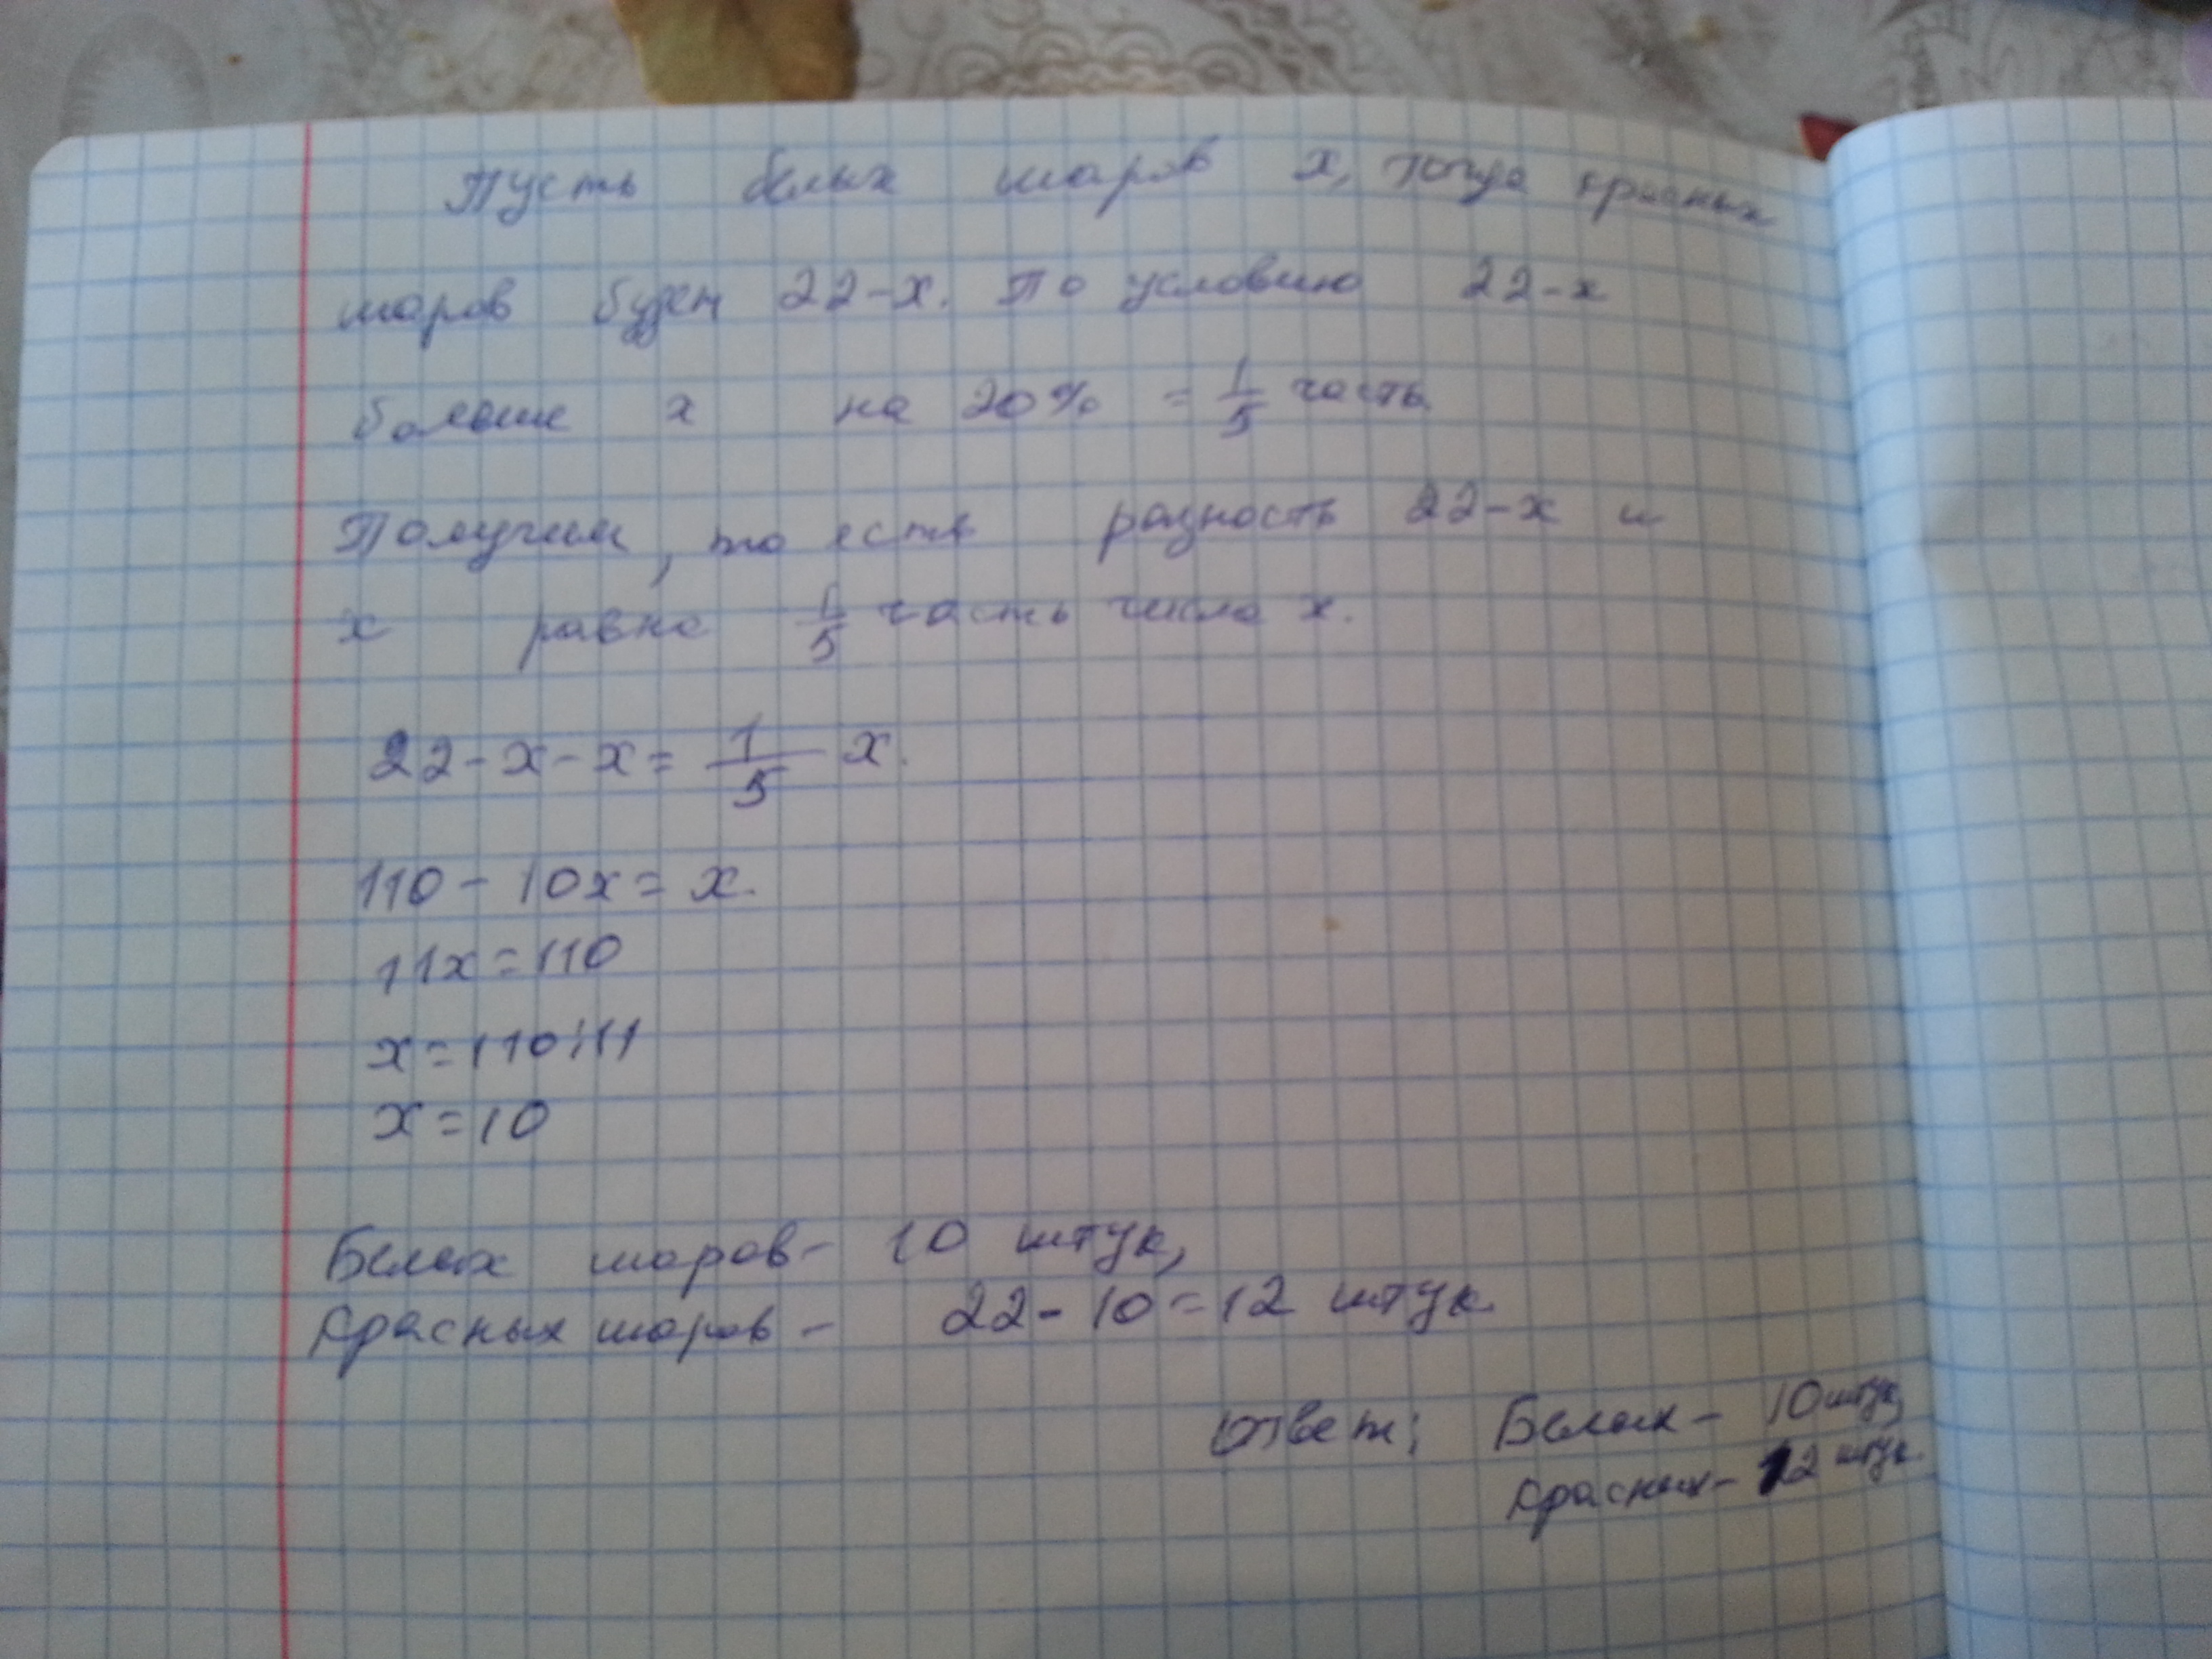 Пусть белых шаров x, тогда красных
шаров будет 22-x. По условию 22-x
больше x на 20% = 1/5 часть
Получим, то есть разность 22-x и
x равна 1/5 часть числа x.
22-x-x= 1/5 x.
110-10x=x.
11x=110
x=110:11
x=10
Белых шаров- 10 штук,
Красных шаров- 22-10=12 штук.
Ответ: Белых- 10 штук,
Красных- 12 штук.